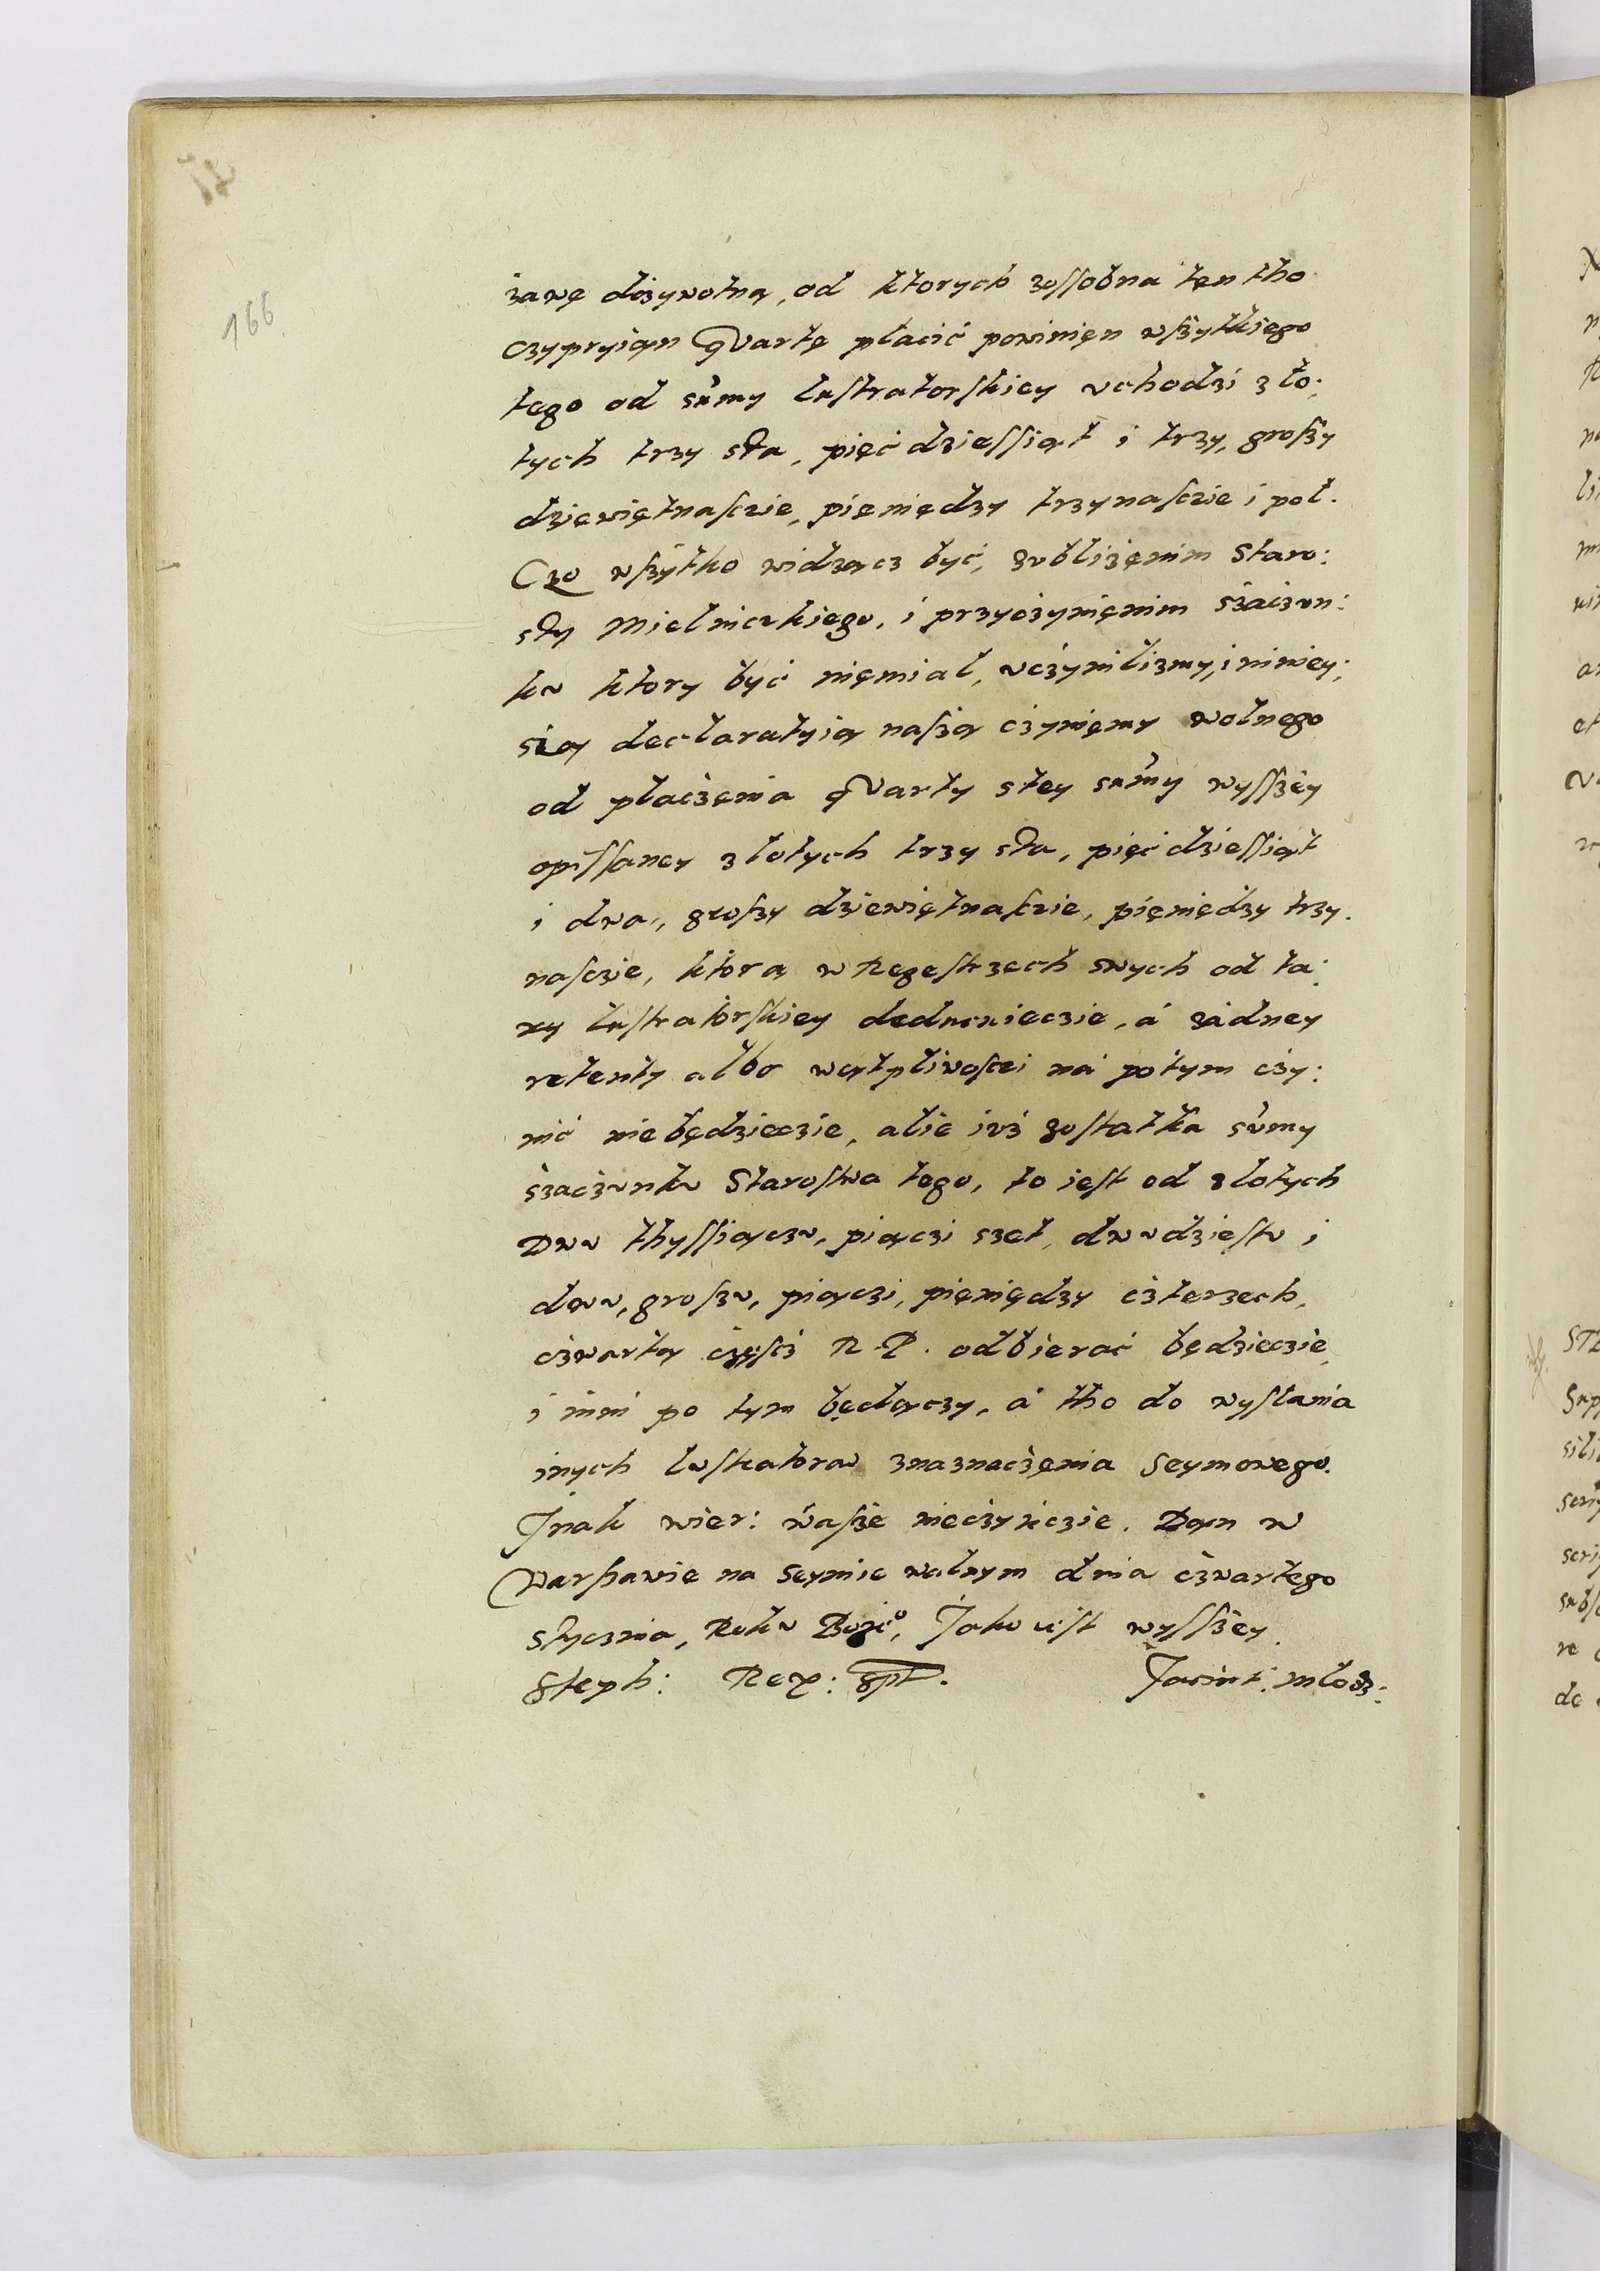 166
żawę dożywotną, od ktorych zossobna tęn tho
Czypryian Qvartę płacić powinięn wszytkiego
tego od sumy lustratorskiey vchodzi zło:
tych trzy sta, pięćdziessiąt i trzy, groszy
dziewiętnascie, pięniędzy trzynascie i poł.
Czo wszytko widzącz być, zvbliżęnim Staro:
sty Mielniczkiego, i przyczynięnim szaczvn:
kv ktory być nięmiał, vczynilizmy, i niniey:
szą declaratyią naszą czynięmy wolnego
od płaczęnia qvarty stey sumy wysszey
opissaney złotych trzy sta, pięćdziessiąt
i dwa, groszy dziewiętnascie, pięniędzy trzy.
nascie, ktorą w Regestrzech swych od ta:
xy lustratorskiey deducuieczie, á żádney
retenty albo wątpliwosci ná potym czy:
nić niebędzieczie, alie ivż zostatka sumy
szaczvnkv Starostwa tego, to iest od złotych
Dwv thyssiączv, piączi szet, dwvdziestv i
dwv, groszv, piączi, pięniędzy czterzech,
czwartą część R. P. odbierać będzieczie,
i inni po tym będączy, á tho do wysłania
inych lustratorow znaznaczęnia Seymowego.
Inak wier: wasze nieczyńczie. Dan w
Warszawie na Seymie walnym dnia czwartego
stycznia, Rokv Boże⁰, Jako iest wysszey.
Steph: Rex: spt. Jacint: Młodz: